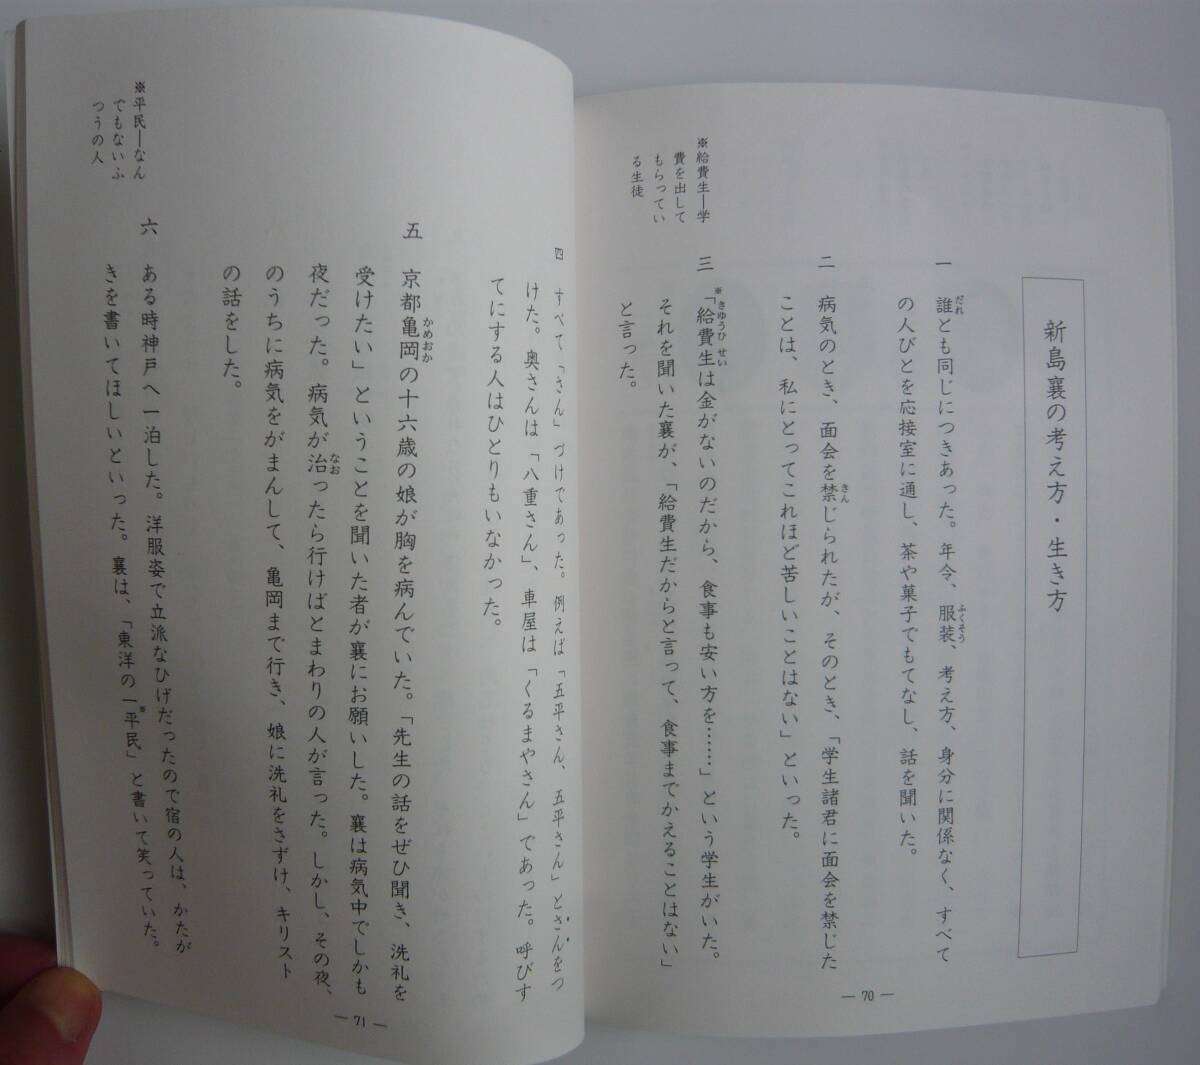 新島襄の考え方・生き方
一 誰とも同じにつきあった。年令、服装、考え方、身分に関係なく、すべて
だれ
ふくそう
の人びとを応接室に通し、茶や菓子でもてなし、話を聞いた。
二 病気のとき、面会を禁じられたが、そのとき、「学生諸君に面会を禁じた
きん
ことは、私にとってこれほど苦しいことはない」といった。
※給費生―学
費を出して
もらってい
る生徒
三 「給費生は金がないのだから、食事も安い方を……」という学生がいた。
※きゅうひ せい
それを聞いた襄が、「給費生だからと言って、食事までかえることはない」
と言った。
― 70 ―
四 すべて「さん」づけであった。例えば「五平さん、五平さん」とさんをつ
けた。奥さんは「八重さん」、車屋は「くるまやさん」であった。呼びす
てにする人はひとりもいなかった。
五 京都亀岡の十六歳の娘が胸を病んでいた。「先生の話をぜひ聞き、洗礼を
かめおか
受けたい」ということを聞いた者が襄にお願いした。襄は病気中でしかも
夜だった。病気が治ったら行けばとまわりの人が言った。しかし、その夜、
なお
のうちに病気をがまんして、亀岡まで行き、娘に洗礼をさずけ、キリスト
の話をした。
※平民―なん
でもないふ
つうの人
六 ある時神戸へ一泊した。洋服姿で立派なひげだったので宿の人は、かたが
きを書いてほしいといった。襄は、「東洋の一平民」と書いて笑っていた。
※
― 71 ―